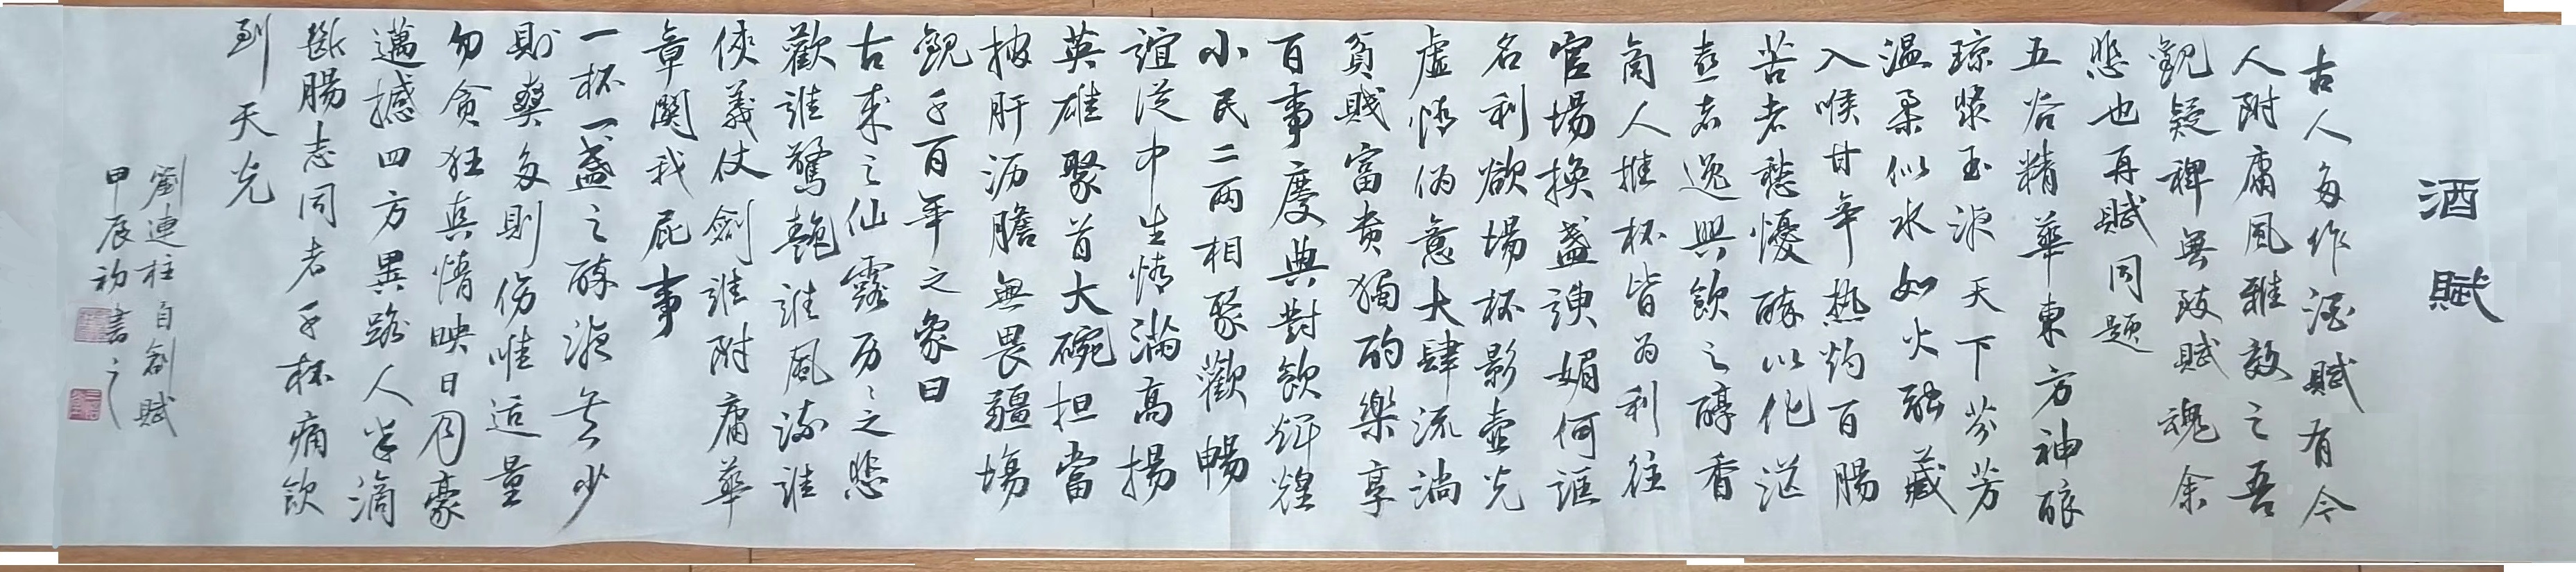 酒賦
古人多作酒賦有今
人附庸風雅效之吾
觀疑裨無致賦魂余
悲也再賦同題
五谷精華東方神釀
琼漿玉液天下芬芳
溫柔似水如火融藏
入喉甘辛热灼百腸
苦者愁憂醉以化淚
喜者逸興飲之醇香
商人推杯皆为利往
官場換盞諛媚何誆
名利欲場杯影壺光
虛情偽意大肆流淌
貧賤富贵独酌樂享
百事慶典對飲輝煌
小民二两相聚歡暢
誼從中生情滿高揚
英雄聚首大碗担當
披肝沥膽無畏疆場
觀千百年之象曰
古來之仙露历之悲
歡誰驚艷誰風流誰
俠義仗劍誰附庸華
章関我屁事
一杯一盞之醉液无少
則爽多則傷唯适量
勿貪狂真情映日月豪
邁撼四方異路人半滴
斷腸志同者千杯痛飲
到天光
劉連柱自創賦
甲辰初書之